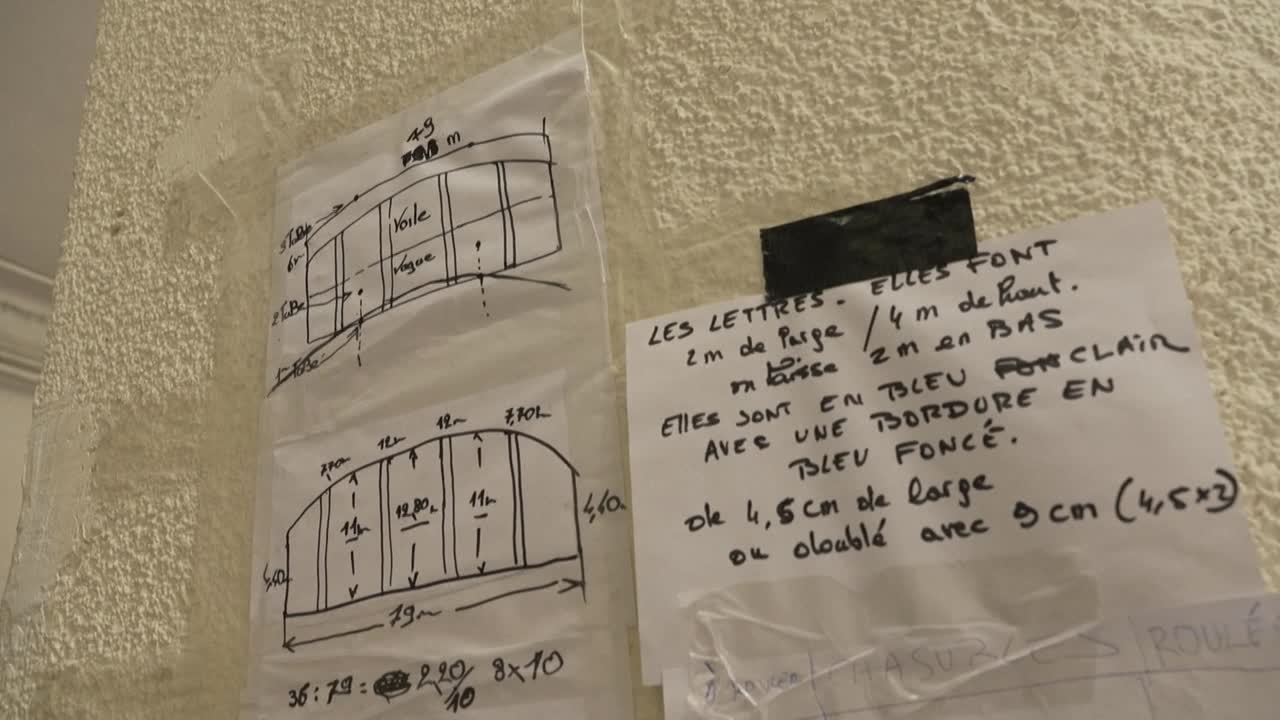 79
m
Voile
Vague
7,70m 12m 12m 7,70m
11m 12,80m 11m
79m
36 : 79 = 2,20/10 8x10
LES LETTRES. ELLES FONT
2m de large / 4m de haut.
on laisse 2m en BAS
ELLES SONT EN BLEU CLAIR
AVEC UNE BORDURE EN
BLEU FONCÉ.
de 4,5cm de large
ou doublé avec 9cm (4,5x2)
CHASUBLES ROULÉ